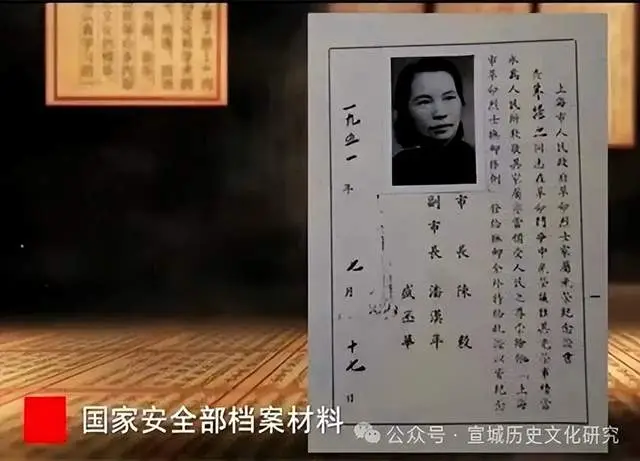 上海市人民政府革命烈士家屬光榮紀念證書
查朱諶之同志在革命鬥爭中光榮犧牲其光榮事蹟當
永為人民所敬其家屬亦當備受人民之尊崇除依「上海
市革命烈士撫卹條例」發給撫卹金外特給此證以資紀念
市長 陳毅
副市長 潘漢年
盛丕華
一九五一年 七月十七日
国家安全部档案材料
公众号·宣城历史文化研究